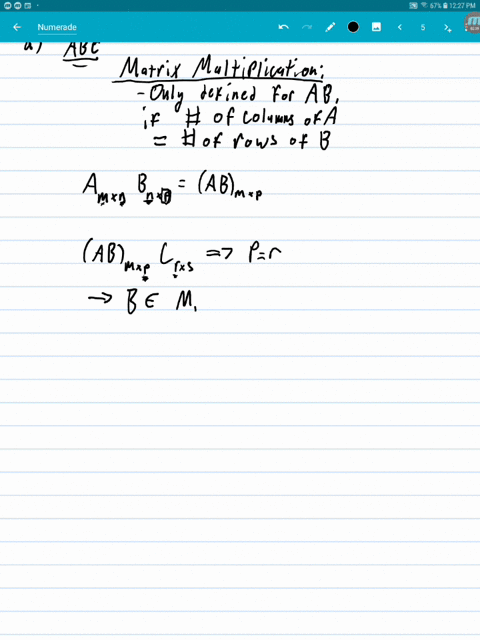 67% 12:27 PM
Numerade
5
a) ABC
Matrix Multiplication:
- Only defined for AB,
if # of columns of A
= # of rows of B
A_{m×n} B_{n×p} = (AB)_{m×p}
(AB)_{m×p} C_{r×s} => P=r
→ B ∈ M,